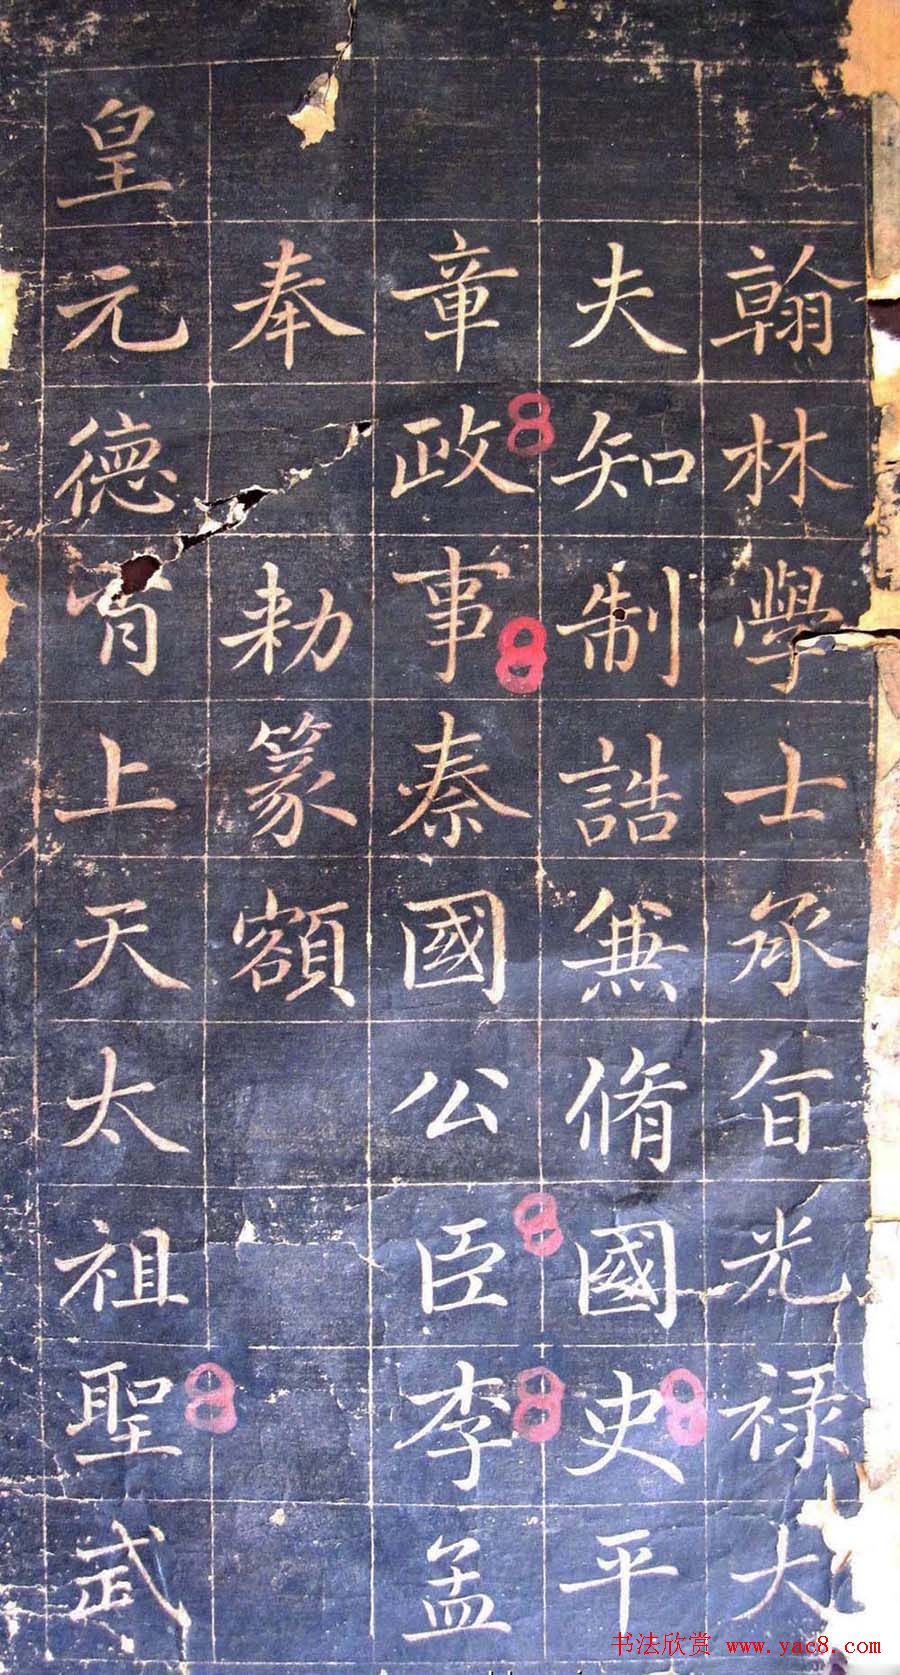 翰林學士承旨光禄大
夫知制誥兼脩國史平
章政事秦國公臣李孟
奉敕篆額
皇元德育上天太祖聖武
书法欣赏 www.yac8.com